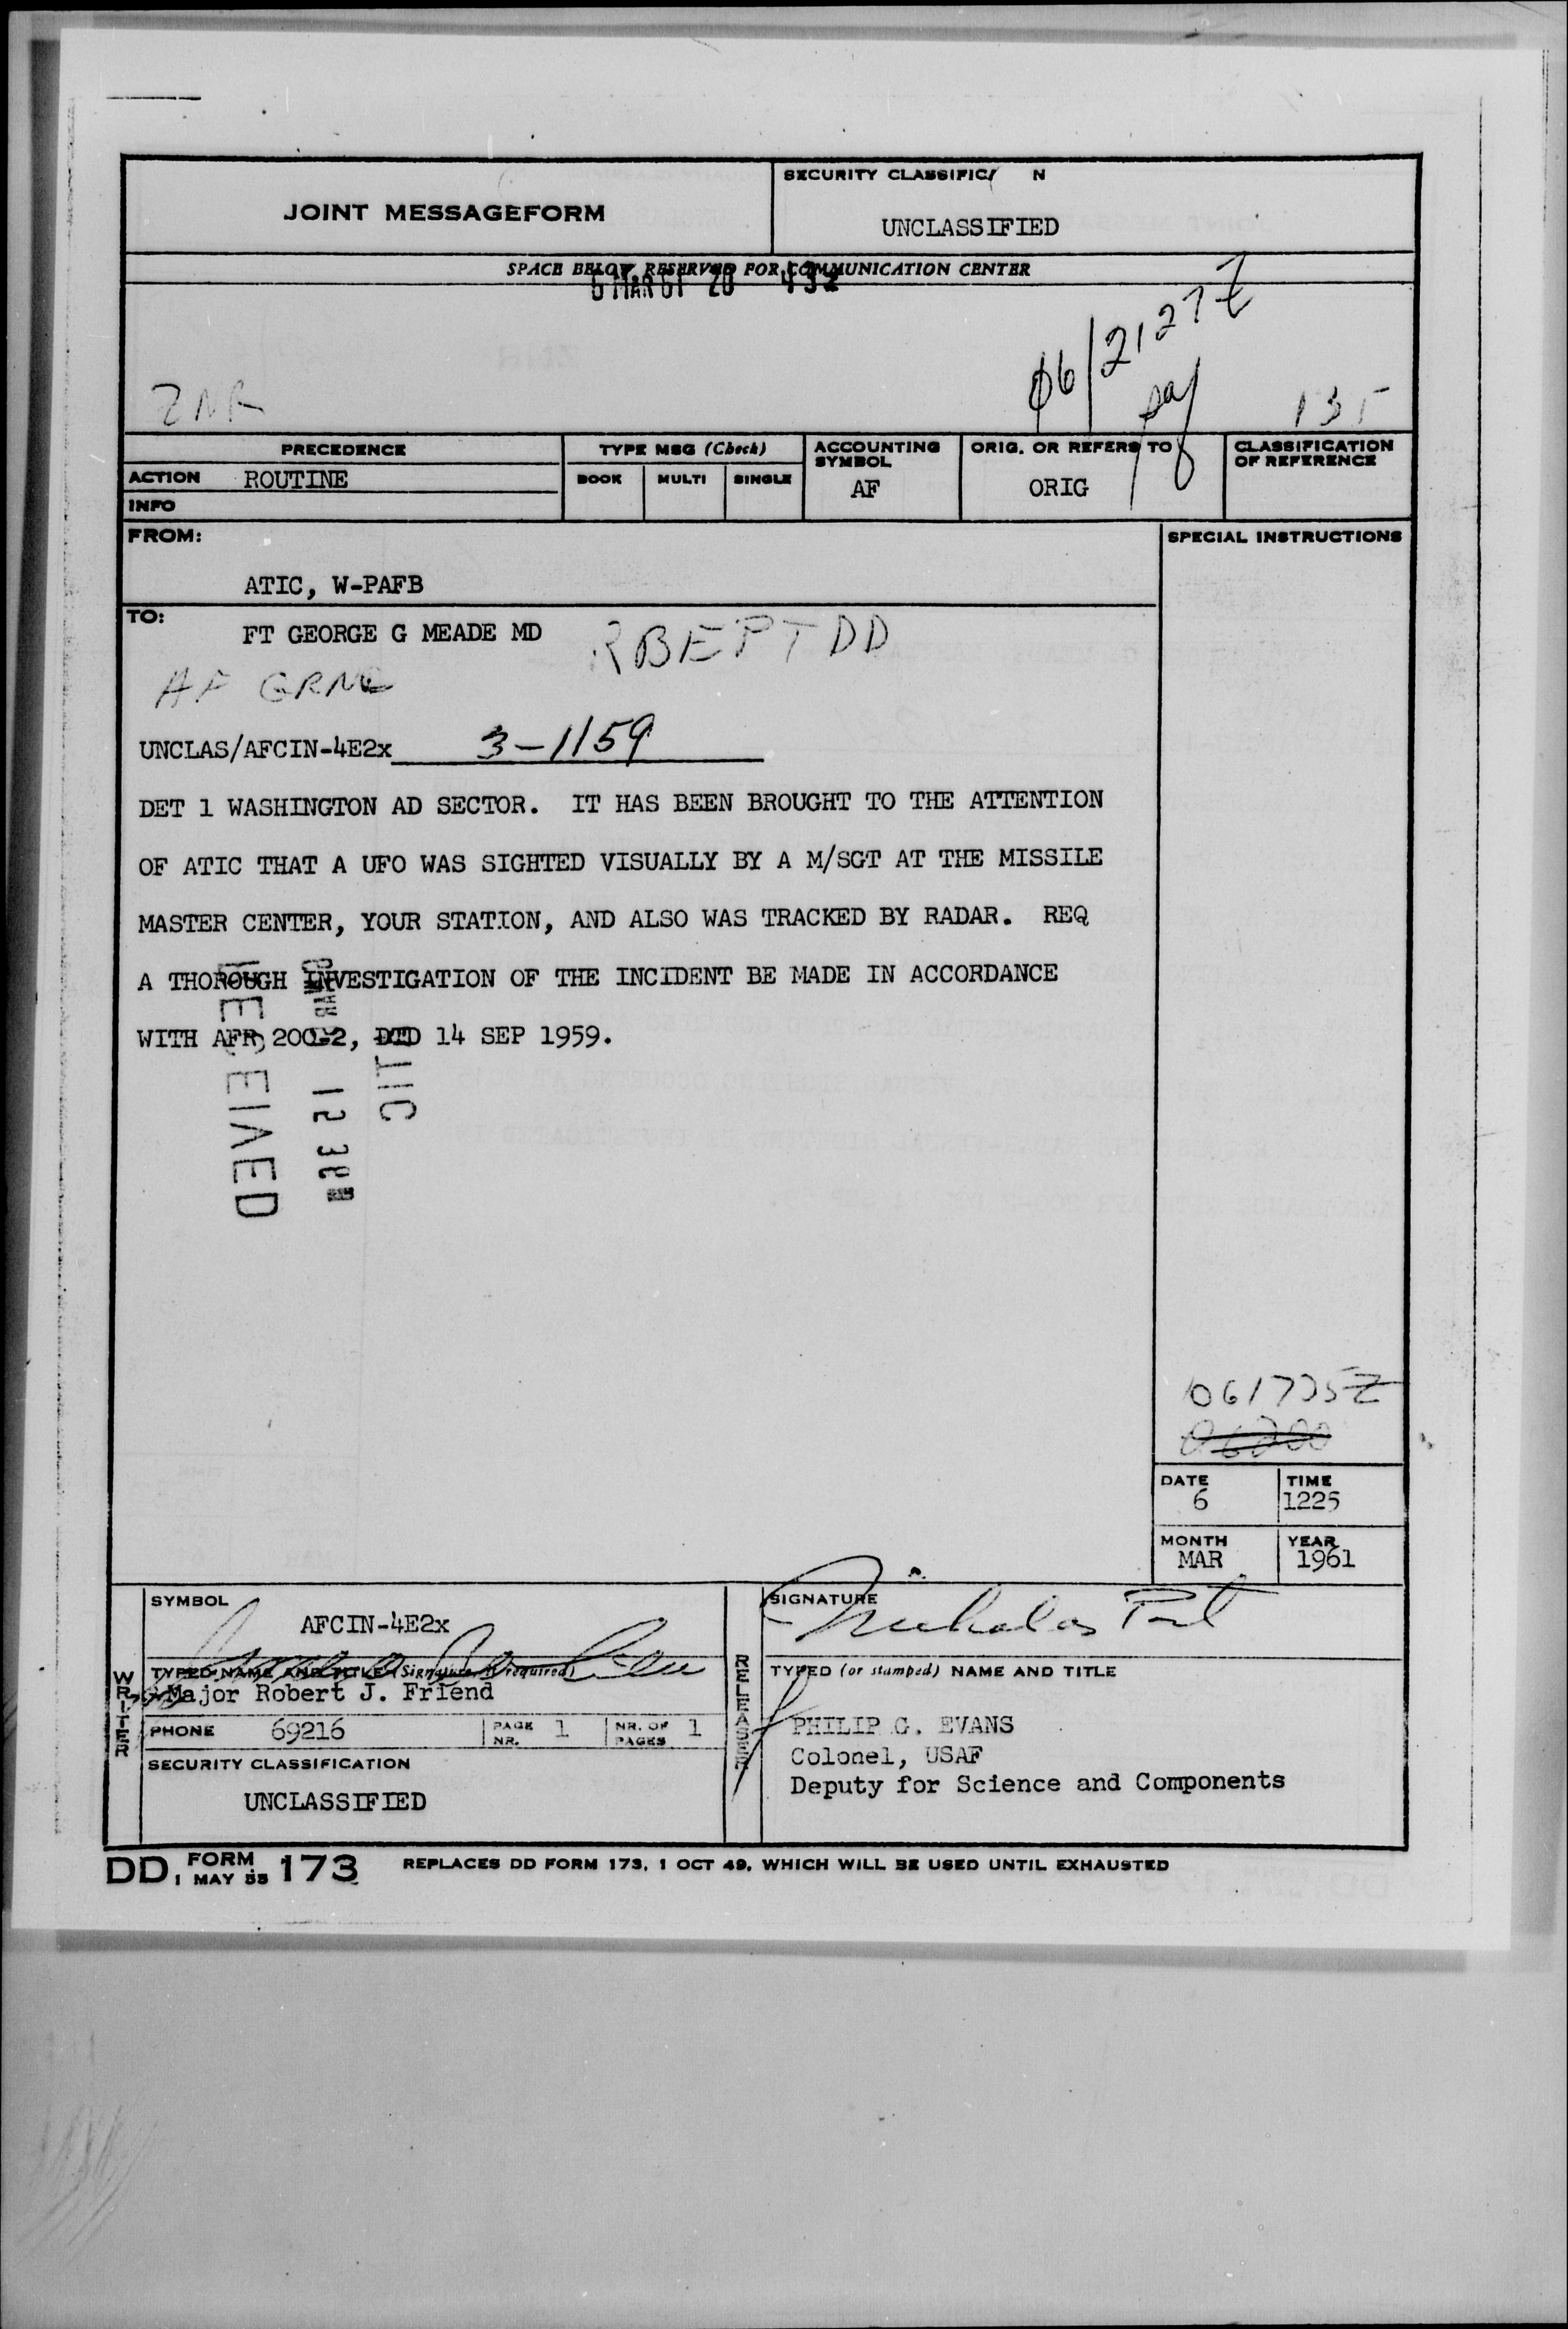 JOINT MESSAGEFORM
SECURITY CLASSIFIC N
UNCLASSIFIED
SPACE BELOW RESERVED FOR COMMUNICATION CENTER
6 MAR 61 20 432
06/2127Z
ZNR
135
PRECEDENCE
TYPE MSG (Check)
ACCOUNTING SYMBOL
ORIG. OR REFERS TO
CLASSIFICATION OF REFERENCE
ACTION ROUTINE
BOOK MULTI SINGLE
AF
ORIG
INFO
FROM:
SPECIAL INSTRUCTIONS
ATIC, W-PAFB
TO:
FT GEORGE G MEADE MD
RBEPTDD
AF GRNC
UNCLAS/AFCIN-4E2x 3-1159
DET 1 WASHINGTON AD SECTOR. IT HAS BEEN BROUGHT TO THE ATTENTION
OF ATIC THAT A UFO WAS SIGHTED VISUALLY BY A M/SGT AT THE MISSILE
MASTER CENTER, YOUR STATION, AND ALSO WAS TRACKED BY RADAR. REQ
A THOROUGH INVESTIGATION OF THE INCIDENT BE MADE IN ACCORDANCE
WITH AFR 200-2, DTD 14 SEP 1959.
061725Z
DATE
6
TIME
1225
MONTH
MAR
YEAR
1961
SYMBOL
AFCIN-4E2x
SIGNATURE
WRITER
TYPED NAME AND TITLE (Signature, if required)
Major Robert J. Friend
RELEASER
TYPED (or stamped) NAME AND TITLE
PHONE 69216
PAGE NR. 1
NR. OF PAGES 1
PHILIP G. EVANS
Colonel, USAF
Deputy for Science and Components
SECURITY CLASSIFICATION
UNCLASSIFIED
DD FORM 1 MAY 55 173 REPLACES DD FORM 173, 1 OCT 49, WHICH WILL BE USED UNTIL EXHAUSTED